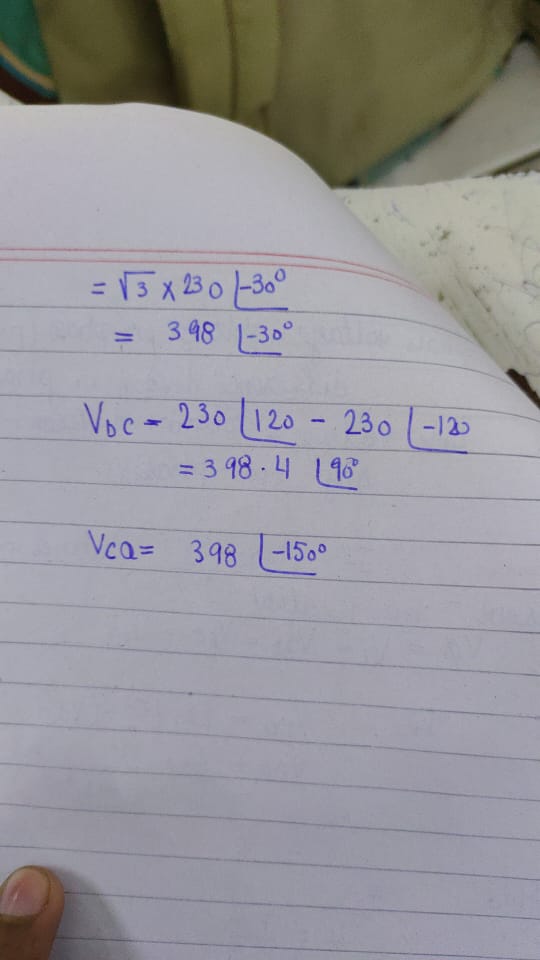 = √3 x 230 ∠-30°
= 398 ∠-30°
Vbc = 230 ∠120 - 230 ∠-120
= 398.4 ∠90°
Vca = 398 ∠-150°